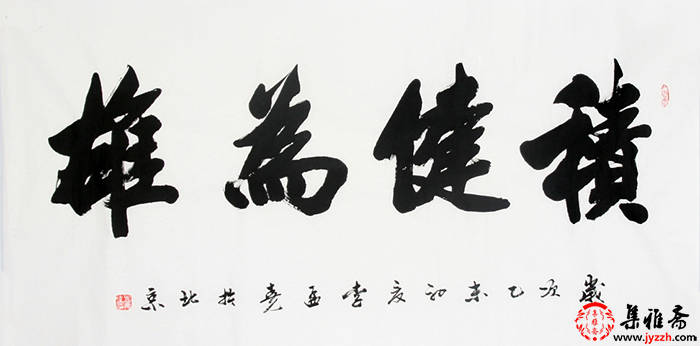 積健為雄
歲次乙未初夏李孟堯於北京
集雅斋
www.jyzzh.com